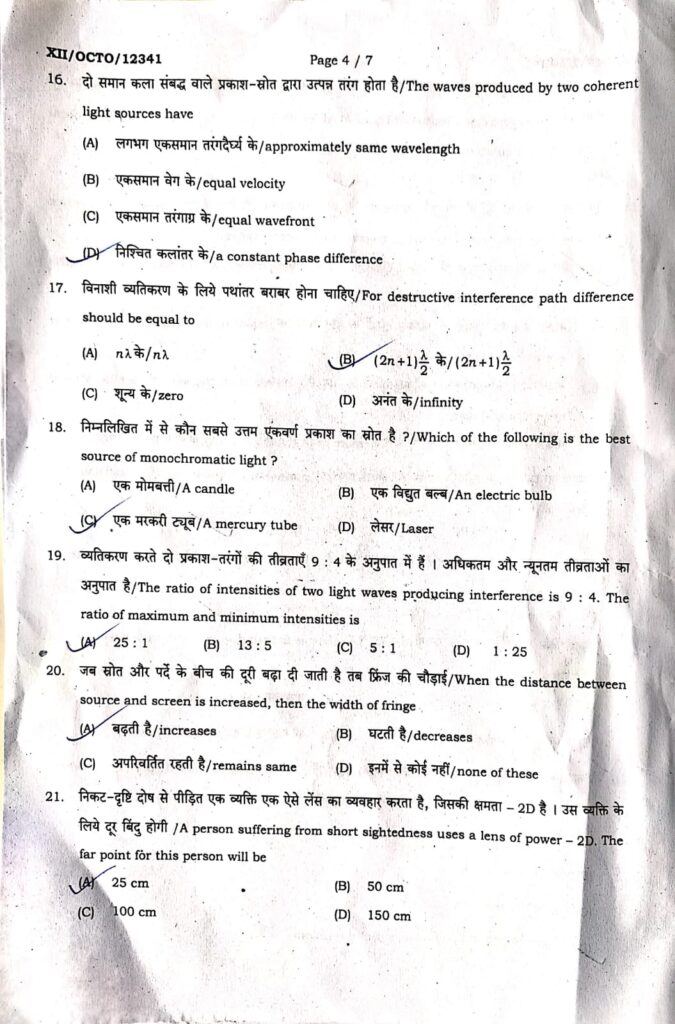 XII/OCTO/12341 Page 4 / 7
16. दो समान कला संबद्ध वाले प्रकाश-स्रोत द्वारा उत्पन्न तरंग होता है/The waves produced by two coherent
light sources have
(A) लगभग एकसमान तरंगदैर्घ्य के/approximately same wavelength
(B) एकसमान वेग के/equal velocity
(C) एकसमान तरंगाग्र के/equal wavefront
(D) निश्चित कलांतर के/a constant phase difference
17. विनाशी व्यतिकरण के लिये पथांतर बराबर होना चाहिए/For destructive interference path difference
should be equal to
(A) nλ के/nλ (B) (2n+1)λ/2 के/(2n+1)λ/2
(C) शून्य के/zero (D) अनंत के/infinity
18. निम्नलिखित में से कौन सबसे उत्तम एकवर्ण प्रकाश का स्रोत है ?/Which of the following is the best
source of monochromatic light ?
(A) एक मोमबत्ती/A candle (B) एक विद्युत बल्ब/An electric bulb
(C) एक मरकरी ट्यूब/A mercury tube (D) लेसर/Laser
19. व्यतिकरण करते दो प्रकाश-तरंगों की तीव्रताएँ 9 : 4 के अनुपात में हैं । अधिकतम और न्यूनतम तीव्रताओं का
अनुपात है/The ratio of intensities of two light waves producing interference is 9 : 4. The
ratio of maximum and minimum intensities is
(A) 25 : 1 (B) 13 : 5 (C) 5 : 1 (D) 1 : 25
20. जब स्रोत और पर्दे के बीच की दूरी बढ़ा दी जाती है तब फ्रिंज की चौड़ाई/When the distance between
source and screen is increased, then the width of fringe
(A) बढ़ती है/increases (B) घटती है/decreases
(C) अपरिवर्तित रहती है/remains same (D) इनमें से कोई नहीं/none of these
21. निकट-दृष्टि दोष से पीड़ित एक व्यक्ति एक ऐसे लेंस का व्यवहार करता है, जिसकी क्षमता – 2D है । उस व्यक्ति के
लिये दूर बिंदु होगी /A person suffering from short sightedness uses a lens of power – 2D. The
far point for this person will be
(A) 25 cm (B) 50 cm
(C) 100 cm (D) 150 cm